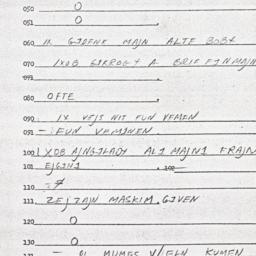 050 0
051 0
060 IX GJDENK MAJN ALTE BOBE
070 IXOB GIKROGT A BRIF FJN MAJN
091
080 OFTE
090 IX VEJS NIT FUN VEMEN
091 - FUN VEMENEN
100 IXOB AJNGILADT ALI MAJNI FRAJN
101 EJGINI 102
110
111 ZEJ ZAJN MASKIM GIVEN
120 0
130 0
131 - DI MUMES V/ELN KUMEN